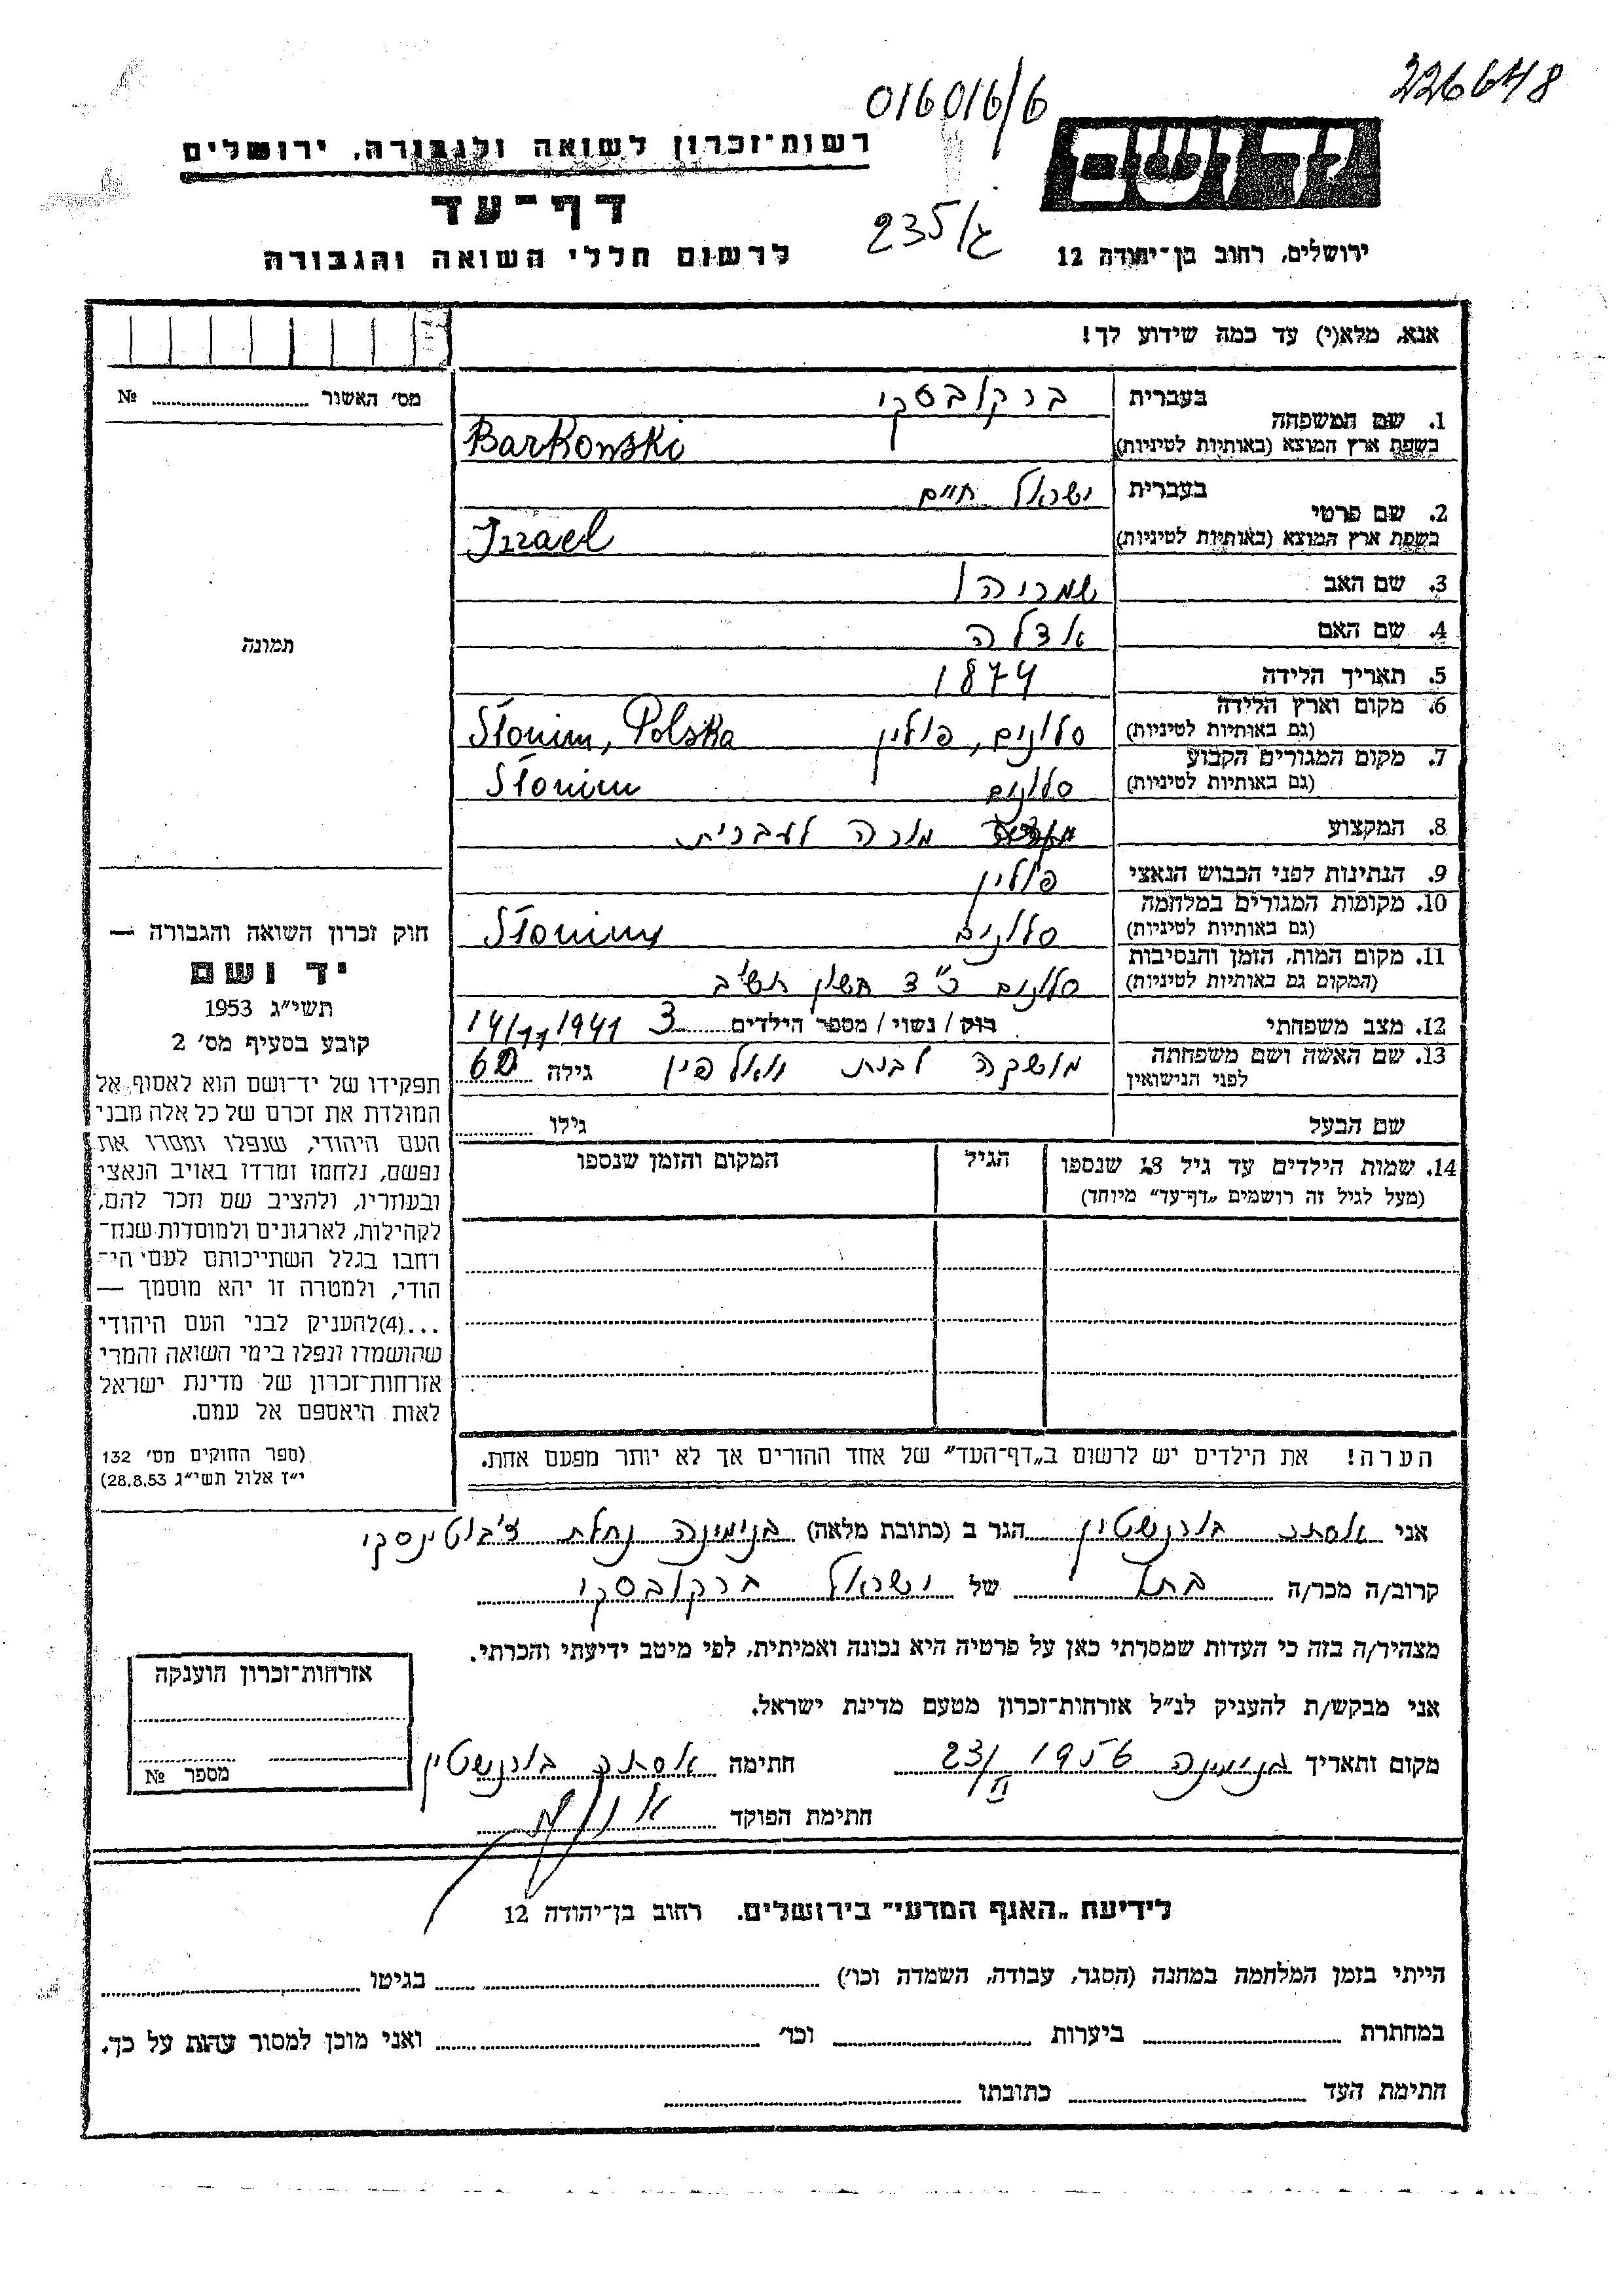 226648
016016/6
יד ושם
רשות־זכרון לשואה ולגבורה, ירושלים
דף־עד
235/ג
ירושלים, רחוב בן־יהודה 12
לרשום חללי השואה והגבורה
אנא, מלא(י) עד כמה שידוע לך!
מס' האשור № 
1. שם המשפחה בעברית ברקובסקי
בשפת ארץ המוצא (באותיות לטיניות) Barkowski
2. שם פרטי בעברית ישראל חיים
בשפת ארץ המוצא (באותיות לטיניות) Izrael
3. שם האב שמריהו
4. שם האם אדלה
5. תאריך הלידה 1874
6. מקום וארץ הלידה (גם באותיות לטיניות) סלונים, פולין Słonim, Polska
7. מקום המגורים הקבוע (גם באותיות לטיניות) סלונים Słonim
8. המקצוע מורה לעברית
9. הנתינות לפני הכבוש הנאצי פולין
10. מקומות המגורים במלחמה (גם באותיות לטיניות) סלונים Słonim
11. מקום המות, הזמן והנסיבות (המקום גם באותיות לטיניות) סלונים כ"ד חשון תש"ב
12. מצב משפחתי רוק / נשוי / מספר הילדים 3 14/11 1941
13. שם האשה ושם משפחתה לפני הנישואין מושקה לבית גילה 60
שם הבעל גילו
14. שמות הילדים עד גיל 18 שנספו הגיל המקום והזמן שנספו
(מעל לגיל זה רושמים „דף־עד" מיוחד)
הערה! את הילדים יש לרשום ב„דף־העד" של אחד ההורים אך לא יותר מפעם אחת.
תמונה
חוק זכרון השואה והגבורה —
יד ושם
תשי"ג 1953
קובע בסעיף מס' 2
תפקידו של יד־ושם הוא לאסוף אל
המולדת את זכרם של כל אלה מבני
העם היהודי, שנפלו ומסרו את
נפשם, נלחמו ומרדו באויב הנאצי
ובעוזריו, ולהציב שם וזכר להם,
לקהילות, לארגונים ולמוסדות שנח־
רבו בגלל השתייכותם לעם הי־
הודי, ולמטרה זו יהא מוסמך —
...(4)להעניק לבני העם היהודי
שהושמדו ונפלו בימי השואה והמרי
אזרחות־זכרון של מדינת ישראל
לאות היאספם אל עמם.
(ספר החוקים מס' 132
י"ז אלול תשי"ג 28.8.53)
אני אסתר בורנשטין הגר ב (כתובת מלאה) בנימינה נחלת ז'בוטינסקי
קרוב/ה מכר/ה בתו של ישראל ברקובסקי
מצהיר/ה בזה כי העדות שמסרתי כאן על פרטיה היא נכונה ואמיתית, לפי מיטב ידיעתי והכרתי.
אני מבקש/ת להעניק לנ"ל אזרחות־זכרון מטעם מדינת ישראל.
מקום ותאריך בנימינה 1956 23/II חתימה אסתר בורנשטין
חתימת הפוקד
אזרחות־זכרון הוענקה
מספר №
לידיעת „האגף המדעי" בירושלים. רחוב בן־יהודה 12
הייתי בזמן המלחמה במחנה (הסגר, עבודה, השמדה וכו') בגיטו
במחתרת ביערות וכו' ואני מוכן למסור עדות על כך.
חתימת העד כתובתו